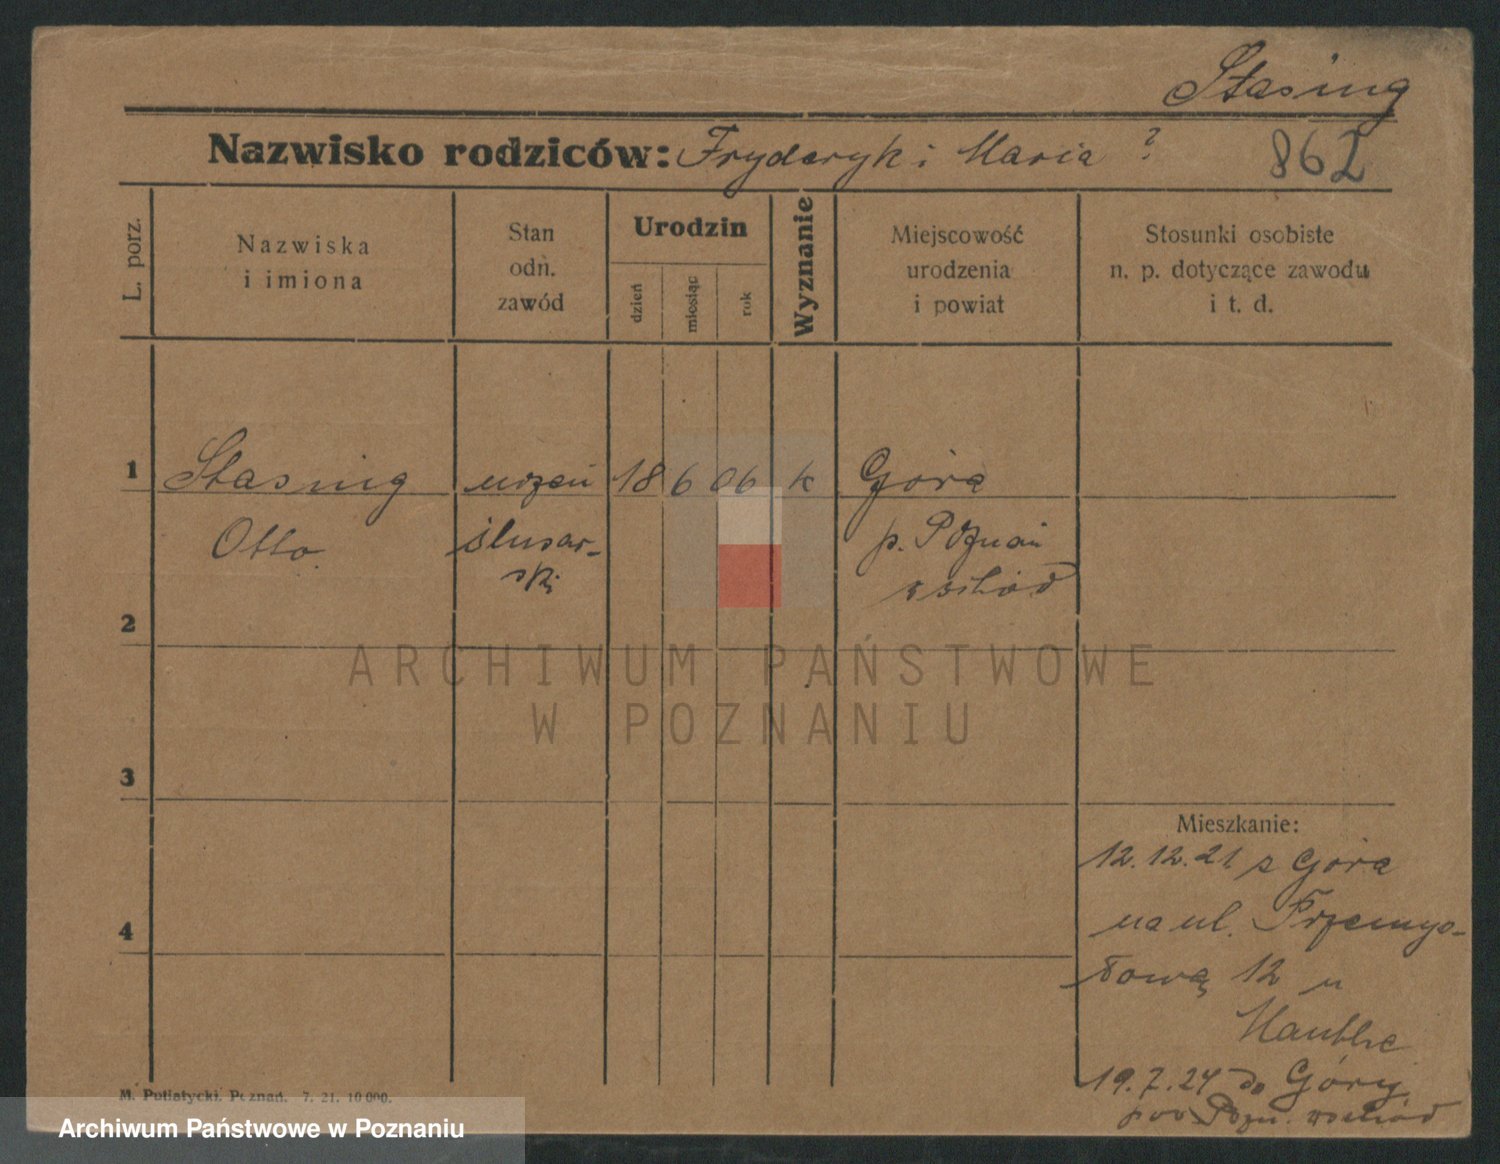 Stasing
Nazwisko rodziców: Fryderyk i Maria ?
862
L. porz.
Nazwiska
i imiona
Stan
odn.
zawód
Urodzin
dzień
miesiąc
rok
Wyznanie
Miejscowość
urodzenia
i powiat
Stosunki osobiste
n. p. dotyczące zawodu
i t. d.
1 Stasing uczeń 18 6 06 k Góra
Otto ślusar- p. Poznań
ski wschód
2
3
4
Mieszkanie:
12.12.21 z Góra
na ul. Przemys-
łową 12 u
19.7.24 do Góry
pow Pozn. wschód
M. Putiatycki, Poznań. 7. 21. 10 000.
ARCHIWUM PAŃSTWOWE
W POZNANIU
Archiwum Państwowe w Poznaniu